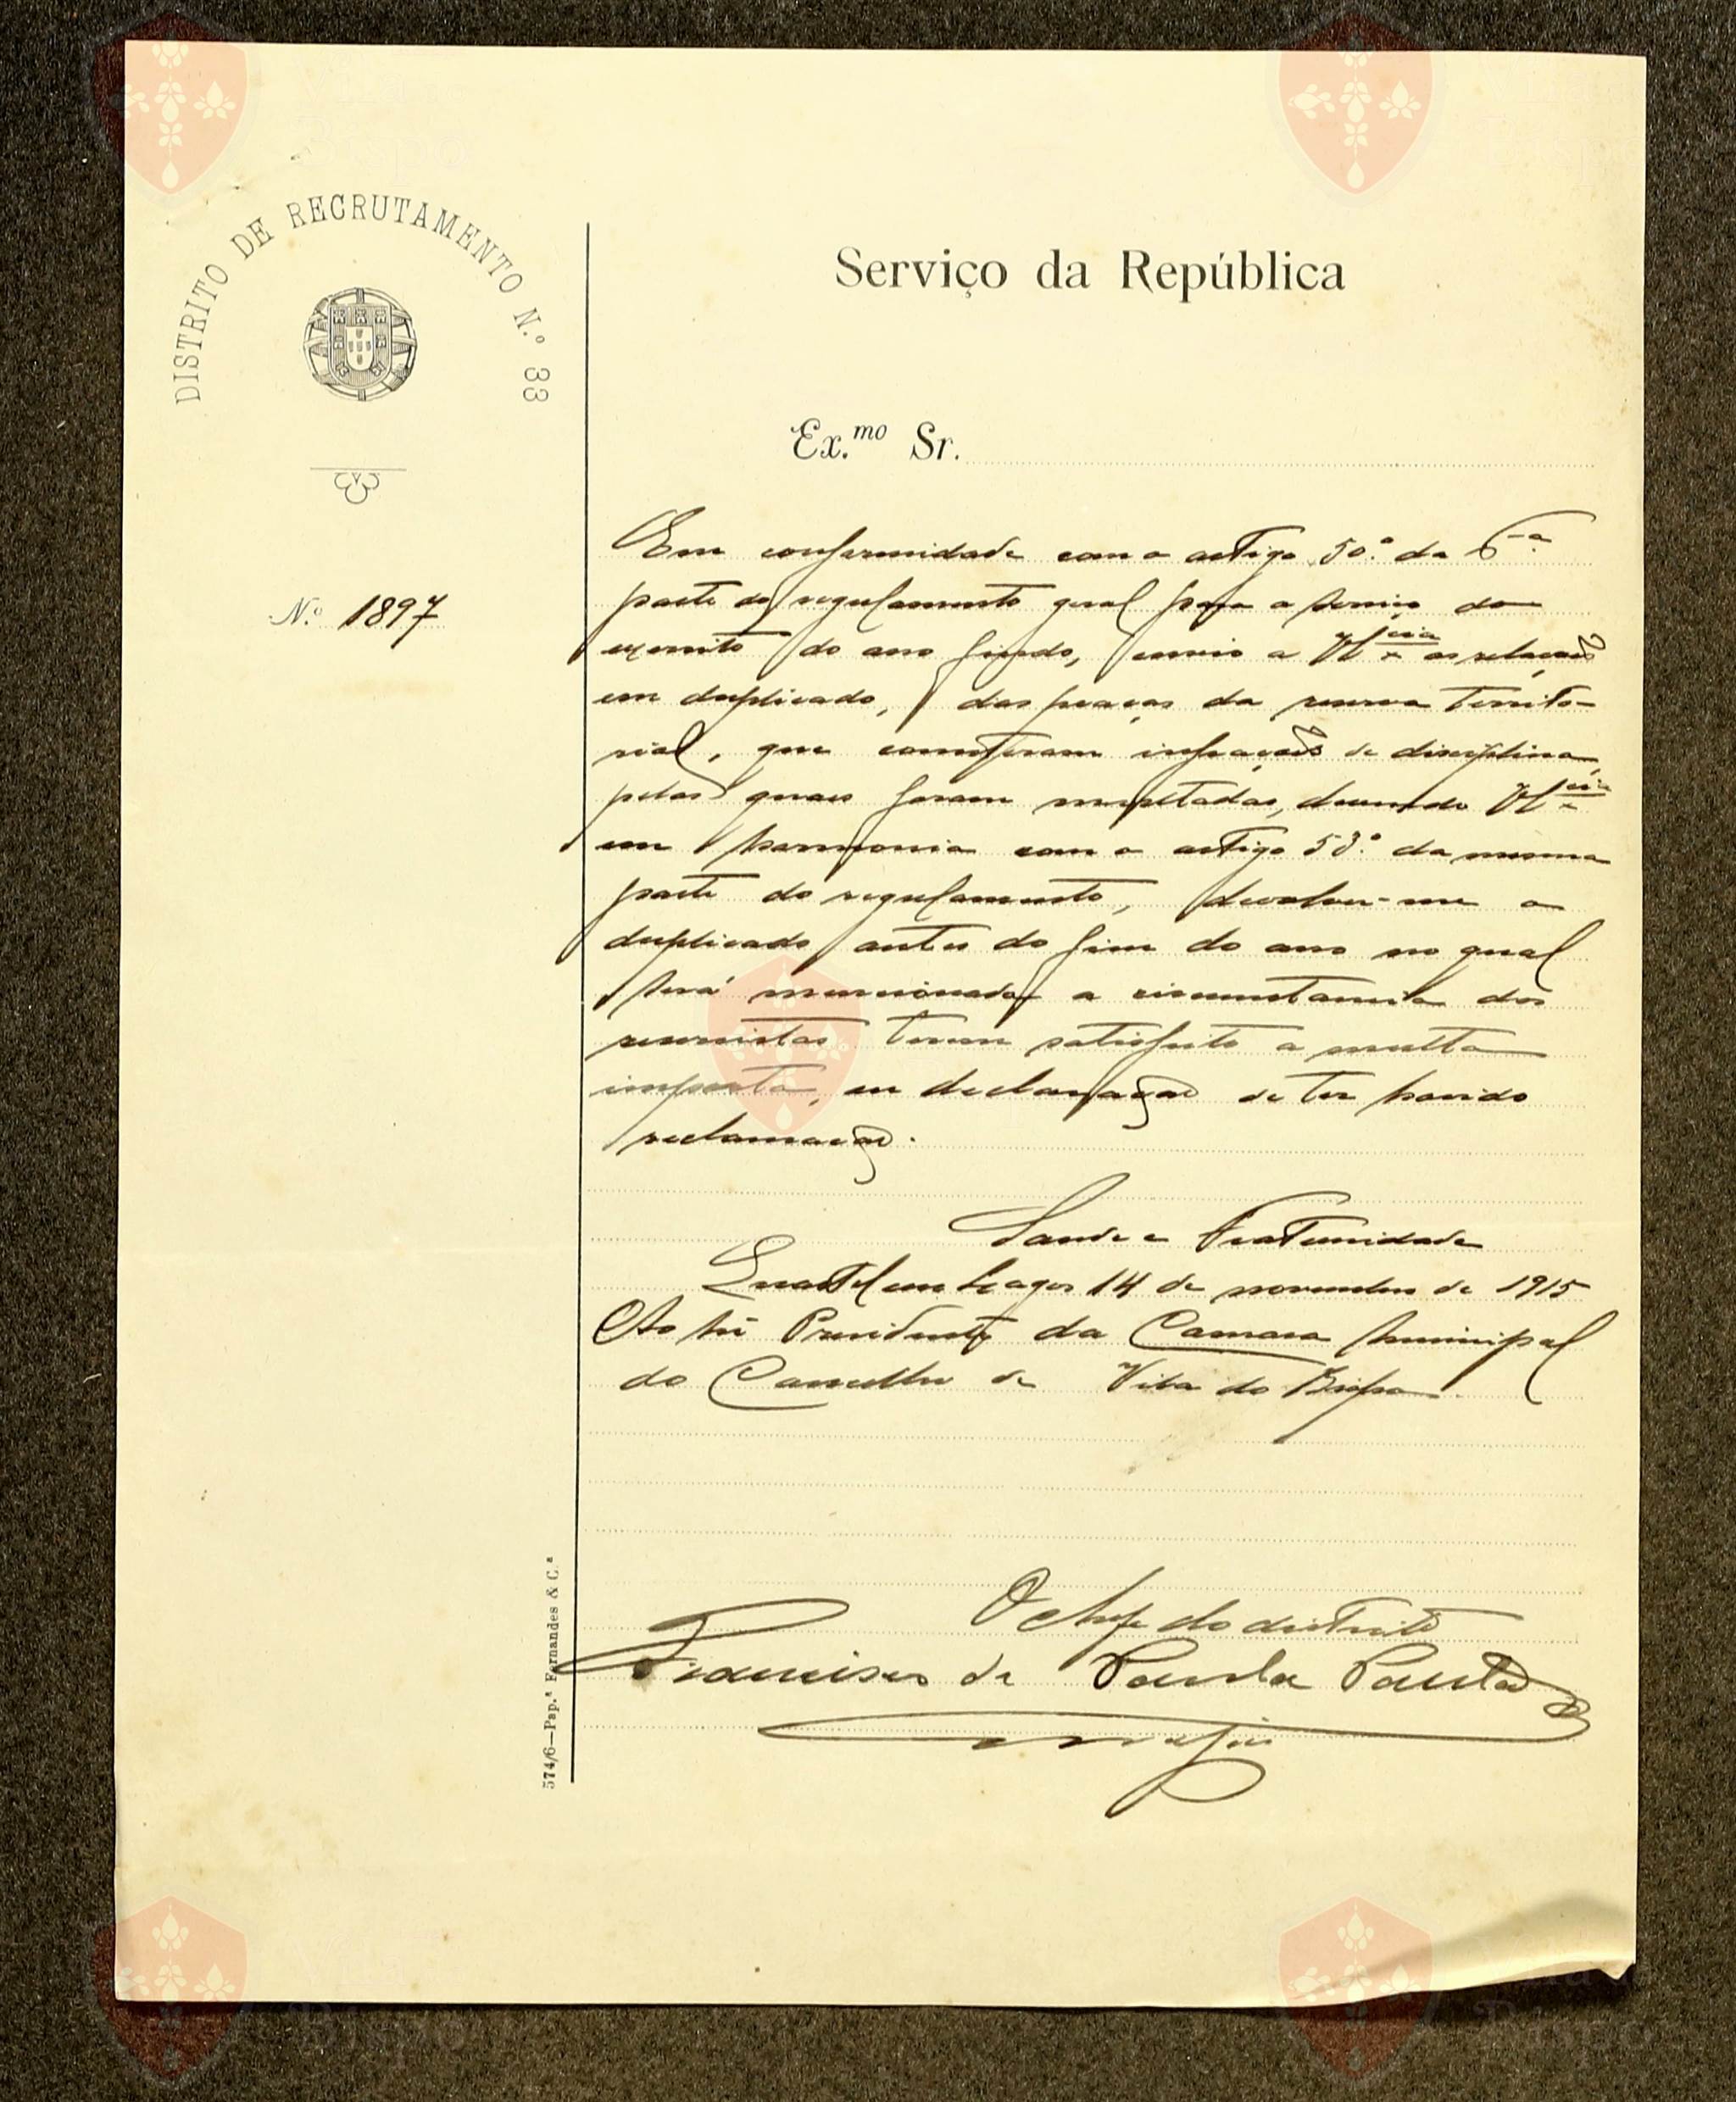 DISTRITO DE RECRUTAMENTO N.º 33
Serviço da República
Ex.mo Sr.
N.º 1897
Em conformidade com o artigo 50.º da 6ª
parte do regulamento geral para o serviço do
exercito do ano findo, envio a V. Exª as relações
em duplicado, das praças da reserva territo-
rial, que cometeram infrações de disciplina,
pelas quaes foram multadas, devendo V. Exª
em harmonia com o artigo 53.º da mesma
parte do regulamento, devolver-me o
duplicado antes do fim do ano no qual
será mencionada a circunstancia dos
reservistas terem satisfeito a multa
imposta, ou declaração de ter havido
reclamação.
Saude e Fraternidade
Quartel em Lagos 14 de novembro de 1915
Ao Sr. Presidente da Camara Municipal
do Concelho de Vila do Bispo.
O chefe do districto
Francisco de Paula
major
574/6—Pap.ª Fernandes & C.ª
Vila do
Bispo